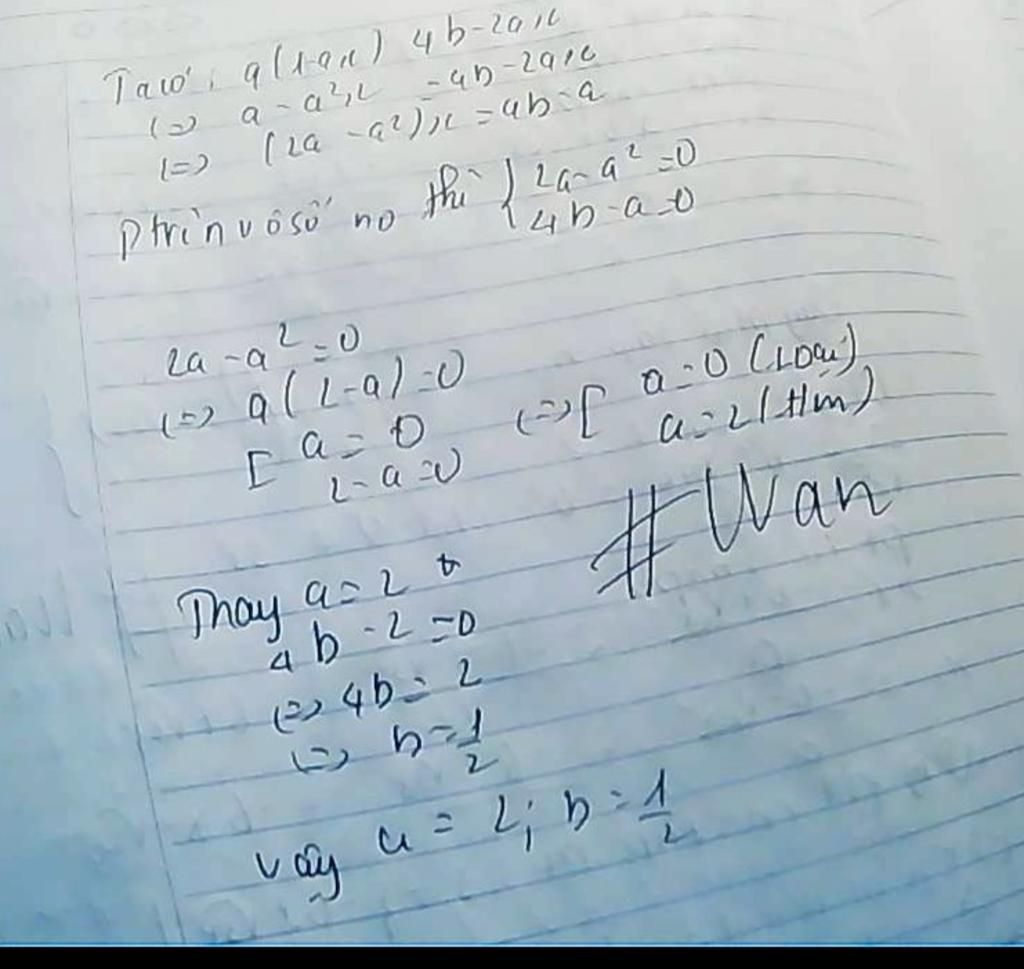 Ta có: a(1-ax) 4b-2ax
<=> a - a²x = 4b-2ax
<=> (2a - a²)x = 4b-a
ptrìn vô số no thì { 2a - a² = 0
4b - a = 0
2a - a² = 0
<=> a(2-a) = 0
[ a = 0
2-a = 0
<=> [ a = 0 (Loại)
a = 2 (t/m)
#Wan
Thay a = 2
4b - 2 = 0
<=> 4b = 2
<=> b = 1/2
vậy a = 2; b = 1/2